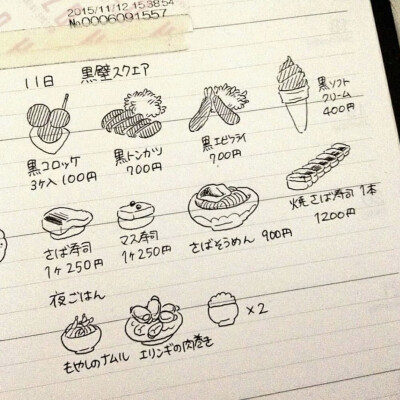 2015/11/12 153854
No0006091557
11日 黒壁スクエア
黒コロッケ
3ヶ入100円
黒トンカツ
700円
黒エビフライ
700円
黒ソフト
クリーム
400円
さば寿司
1ヶ250円
マス寿司
1ヶ250円
さばそうめん 900円
焼さば寿司 1本
1200円
夜ごはん
もやしのナムル
エリンギの肉巻き
×2